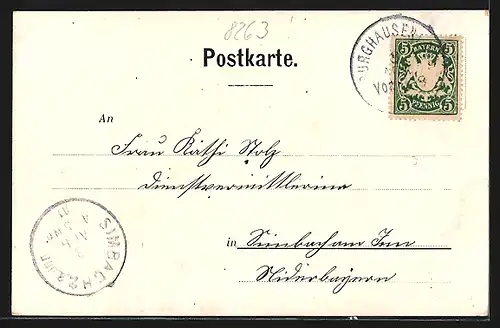 8263
BURGHAUSEN
BAYERN
5 5
5 5
PFENNIG
Postkarte.
An
Frau Käthi Stolz
Dienstvermittlerin
in Simbach am Inn
Niederbayern
SIMBACH